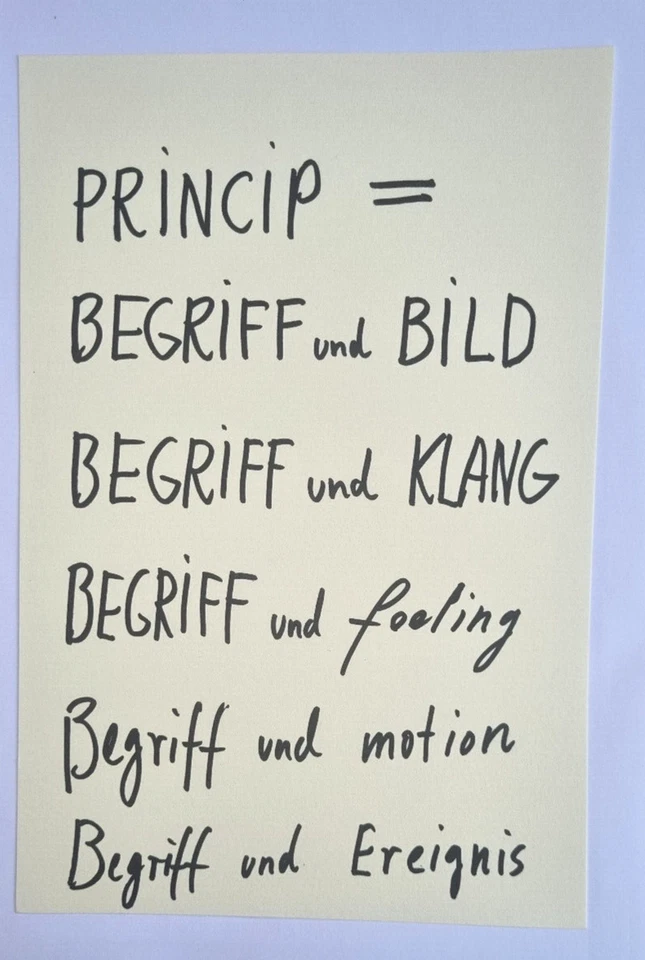 PRiNCiP =
BEGRiFF und BiLD
BEGRiFF und KLANG
BEGRiFF und feeling
Begriff und motion
Begriff und Ereignis